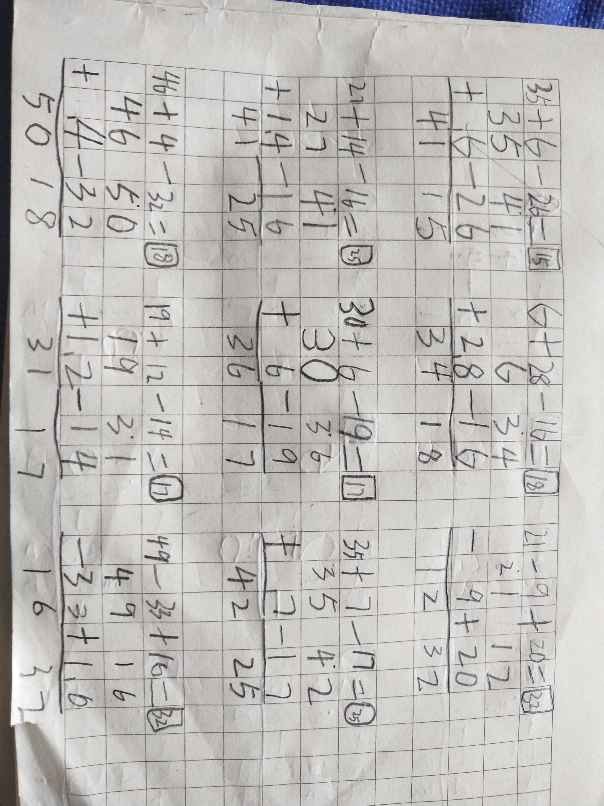 35+6-26=15 6+28-16=18 21-9+20=32
35 41 6 34 21 12
+ 6-26 +28-16 - 9+20
41 15 34 18 12 32
27+14-16=25 30+6-19=17 35+7-17=25
27 41 30 36 35 42
+14-16 + 6-19 + 7-17
41 25 36 17 42 25
46+4-32=18 19+12-14=17 49-33+16=32
46 50 19 31 49 16
+ 4-32 +12-14 -33+16
50 18 31 17 16 32